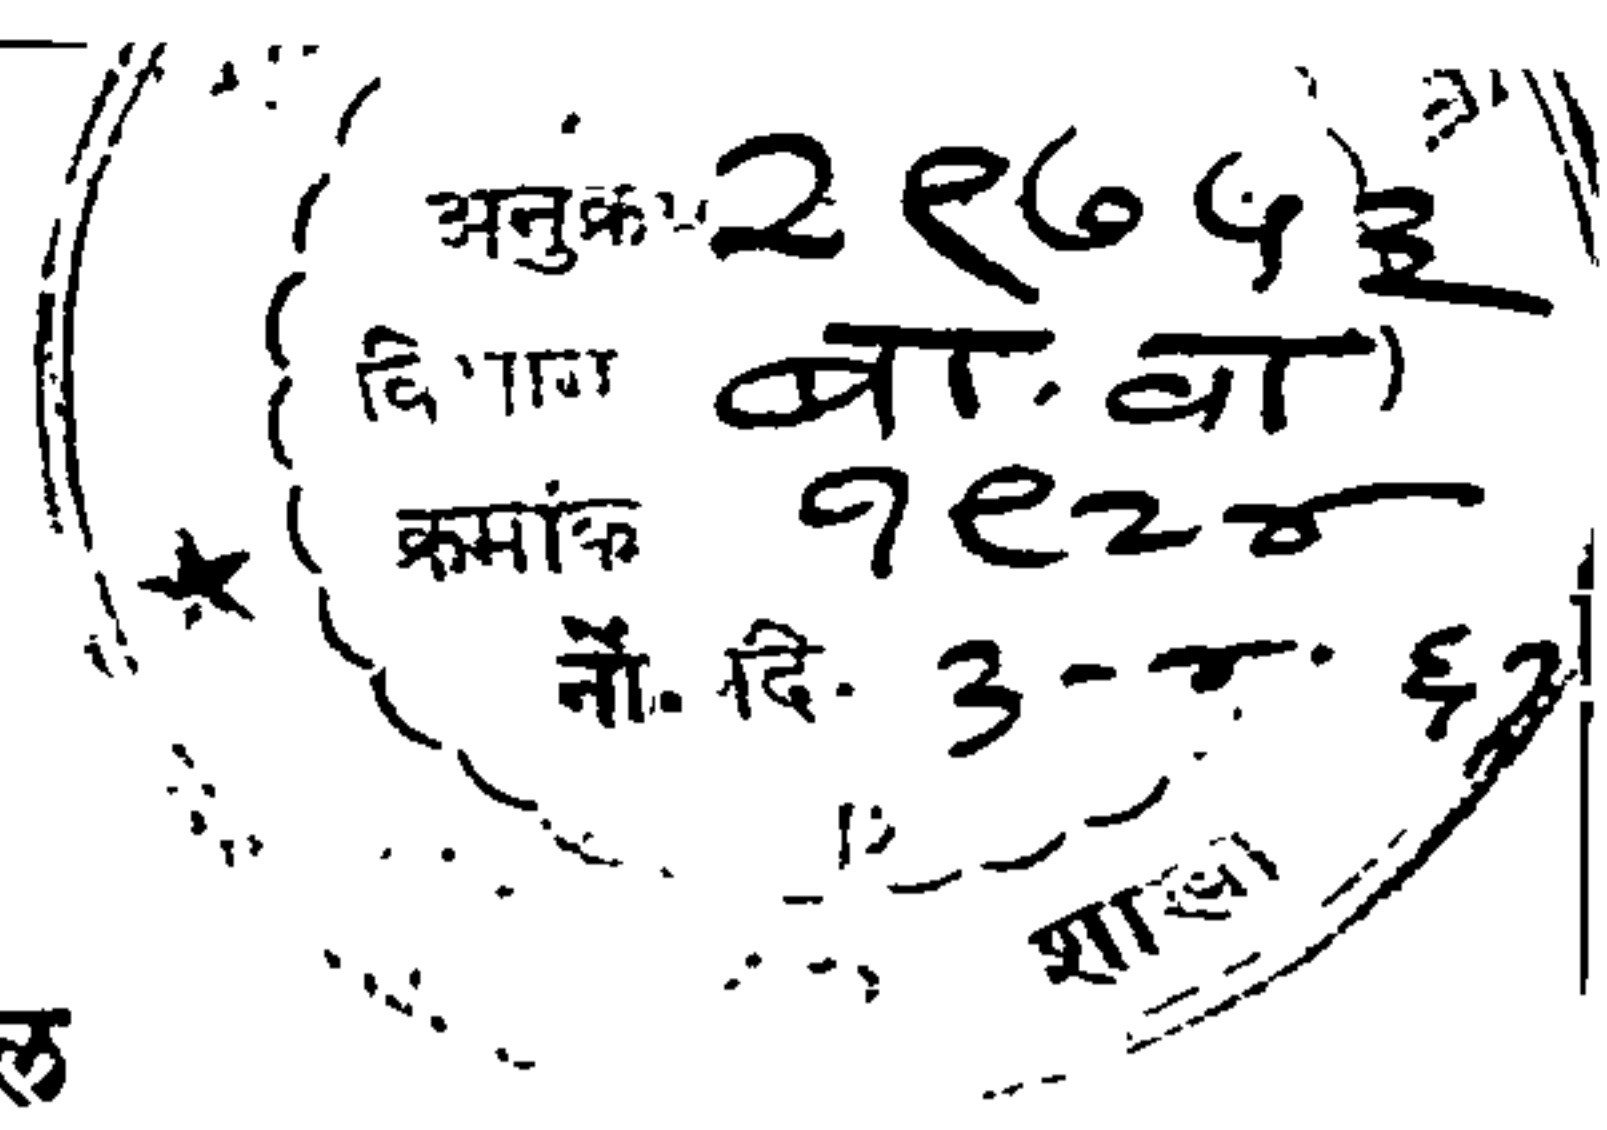 अनुक्रम २९७५३
विभाग बा. वा
क्रमांक १९२४
नों. दि. ३-४. ६२
शाखा